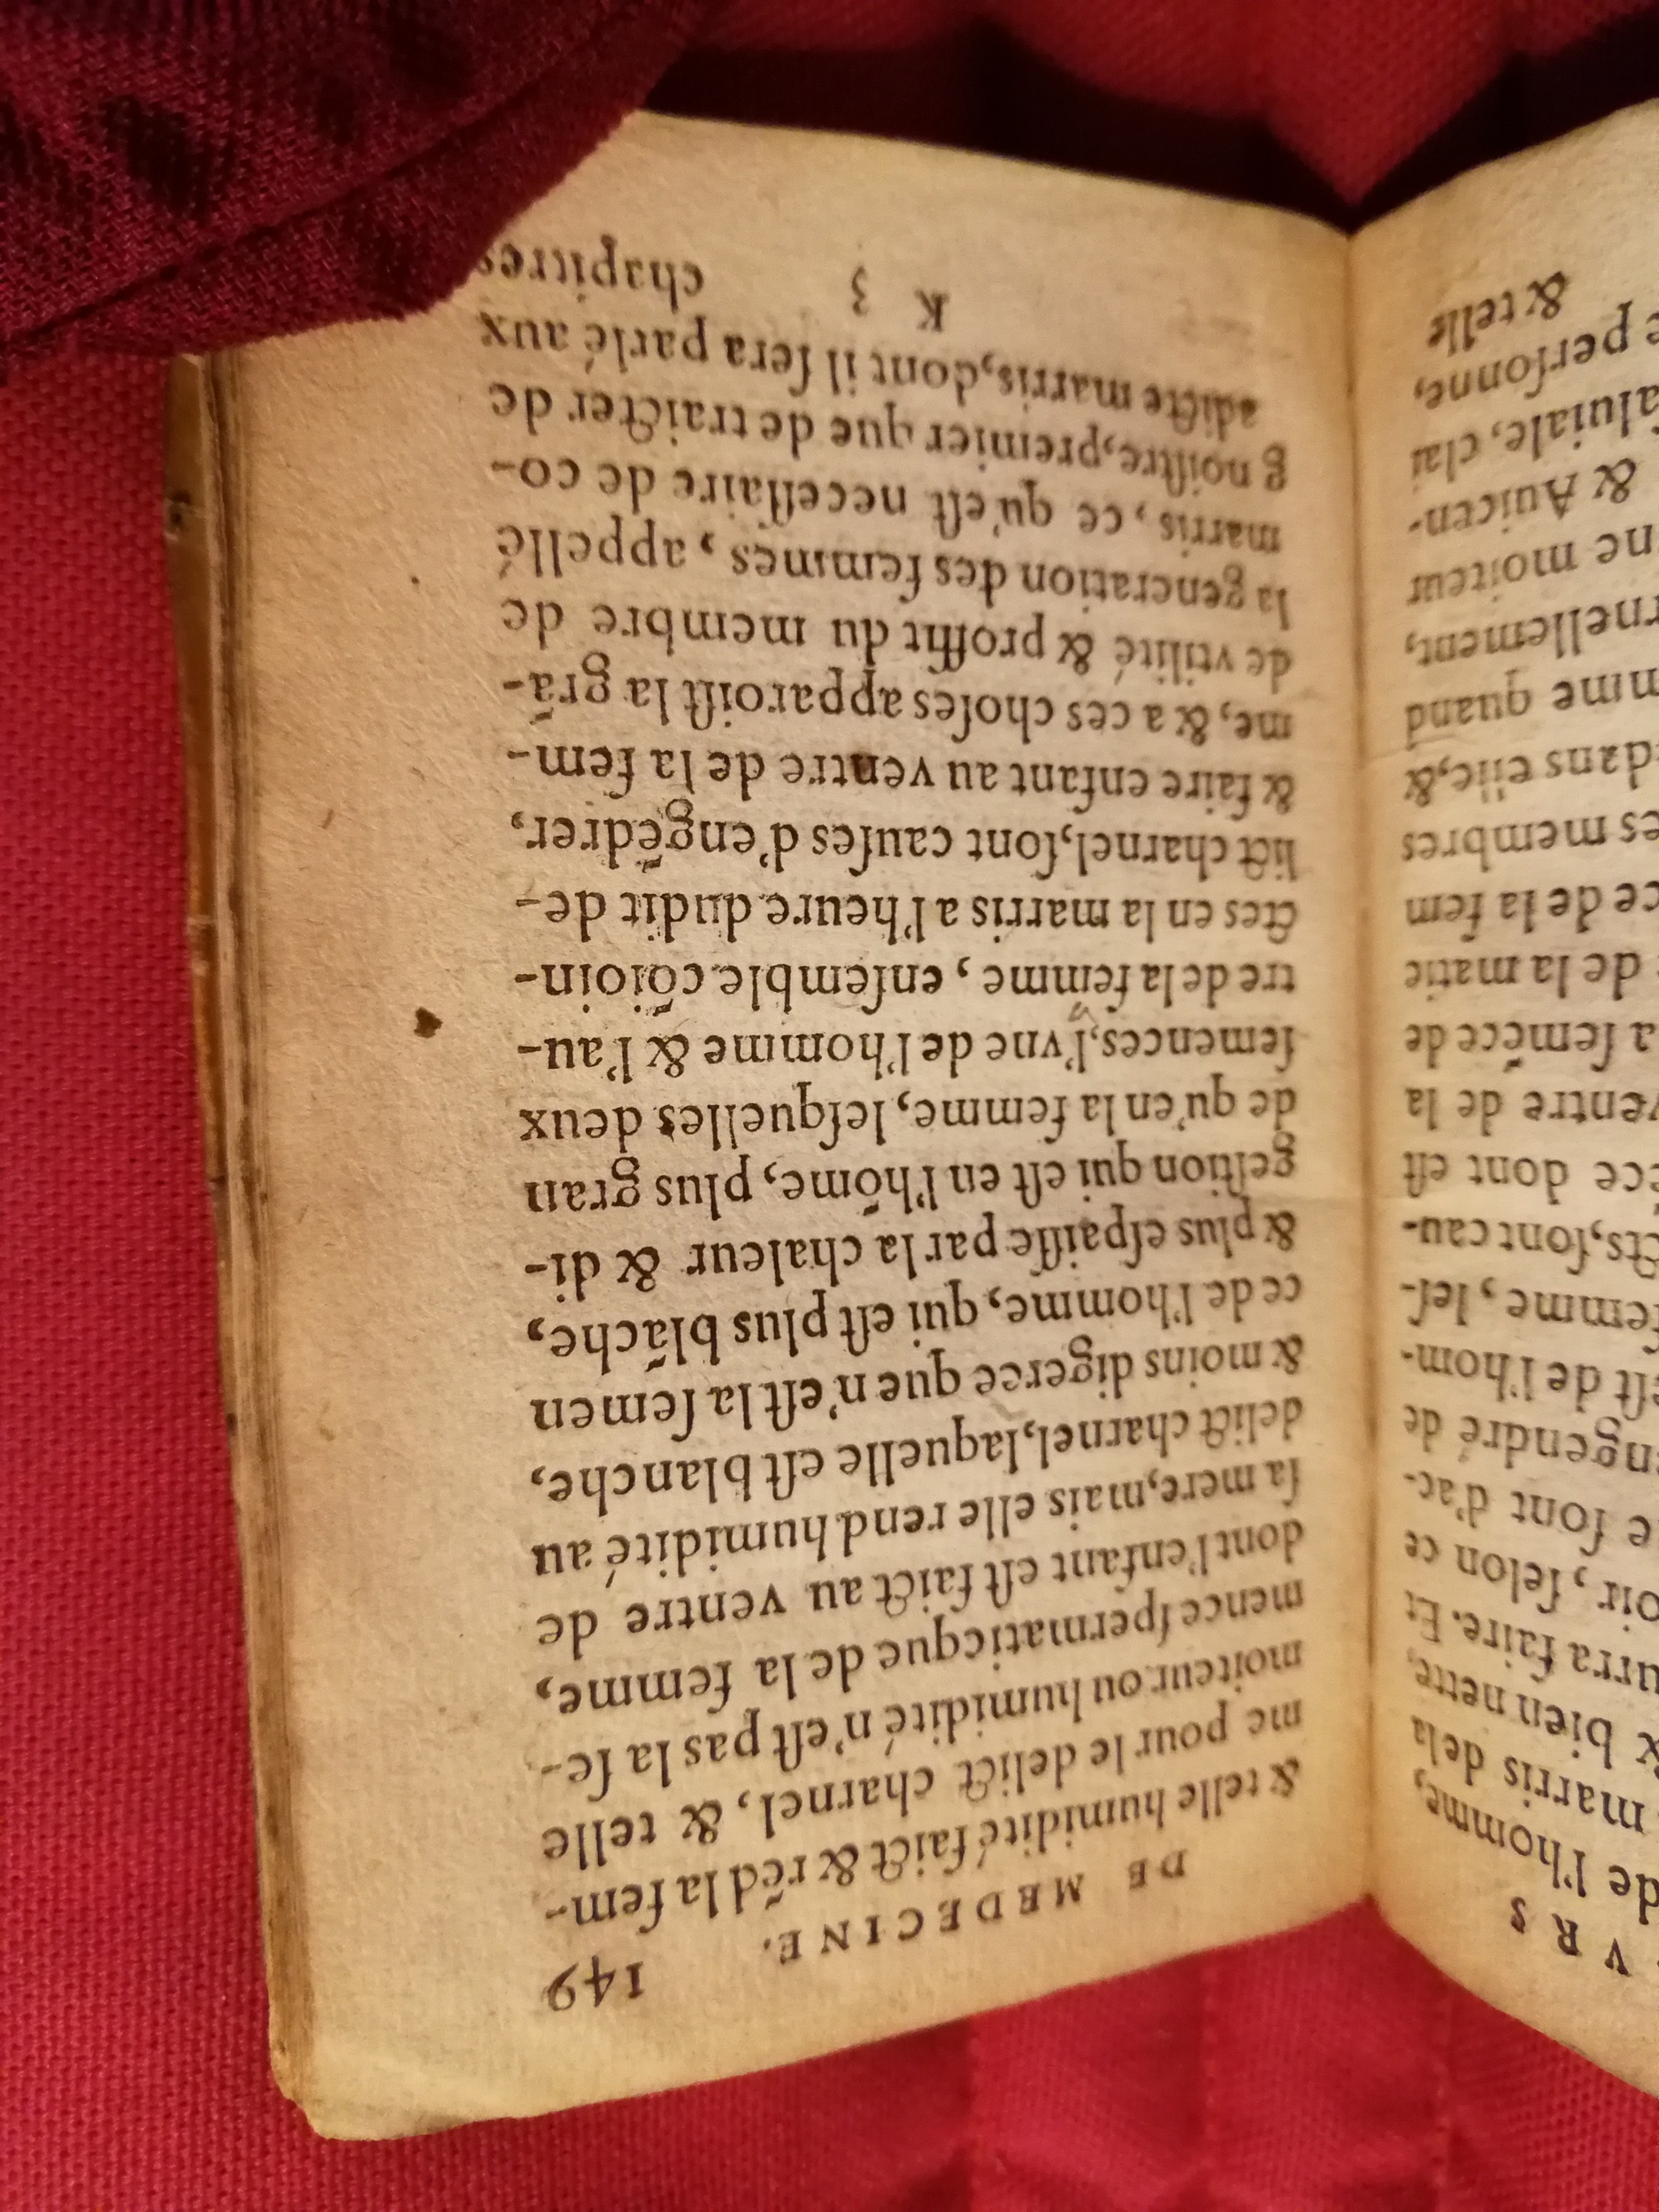 VRS
de l'homme,
marris dela
& bien nette,
urra faire. Et
oir, ſelon ce
e ſont d'ac-
ngendré de
eſt de l'hom-
femme, leſ-
cts, ſont cau-
ēce dont eſt
ventre de la
a ſemēce de
de la matie
ce de la fem
es membres
dans elle, &
mme quand
rnellement,
ne moiteur
& Auicen-
aluiale, clai
e perſonne,
& telle
DE MEDECINE. 149
& telle humidité faict & rēd la fem-
me pour le delict charnel, & telle
moiteur ou humidité n'eſt pas la ſe-
mence ſpermaticque de la femme,
dont l'enfant eſt faict au ventre de
ſa mere, mais elle rend humidité au
delict charnel, laquelle eſt blanche,
& moins digeree que n'eſt la ſemen
ce de l'homme, qui eſt plus blāche,
& plus eſpaiſſe par la chaleur & di-
geſtion qui eſt en l'hōme, plus gran
de qu'en la femme, leſquelles deux
ſemences, l'vne de l'homme & l'au-
tre de la femme, enſemble cōioin-
ctes en la marris a l'heure dudit de-
lict charnel, ſont cauſes d'engēdrer,
& faire enfant au ventre de la fem-
me, & a ces choſes apparoiſt la grā-
de vtilité & proffit du membre de
la generation des femmes, appellé
marris, ce qu'eſt neceſſaire de co-
g noiſtre, premier que de traicter de
adicte marris, dont il ſera parlé aux
K 3 chapitres